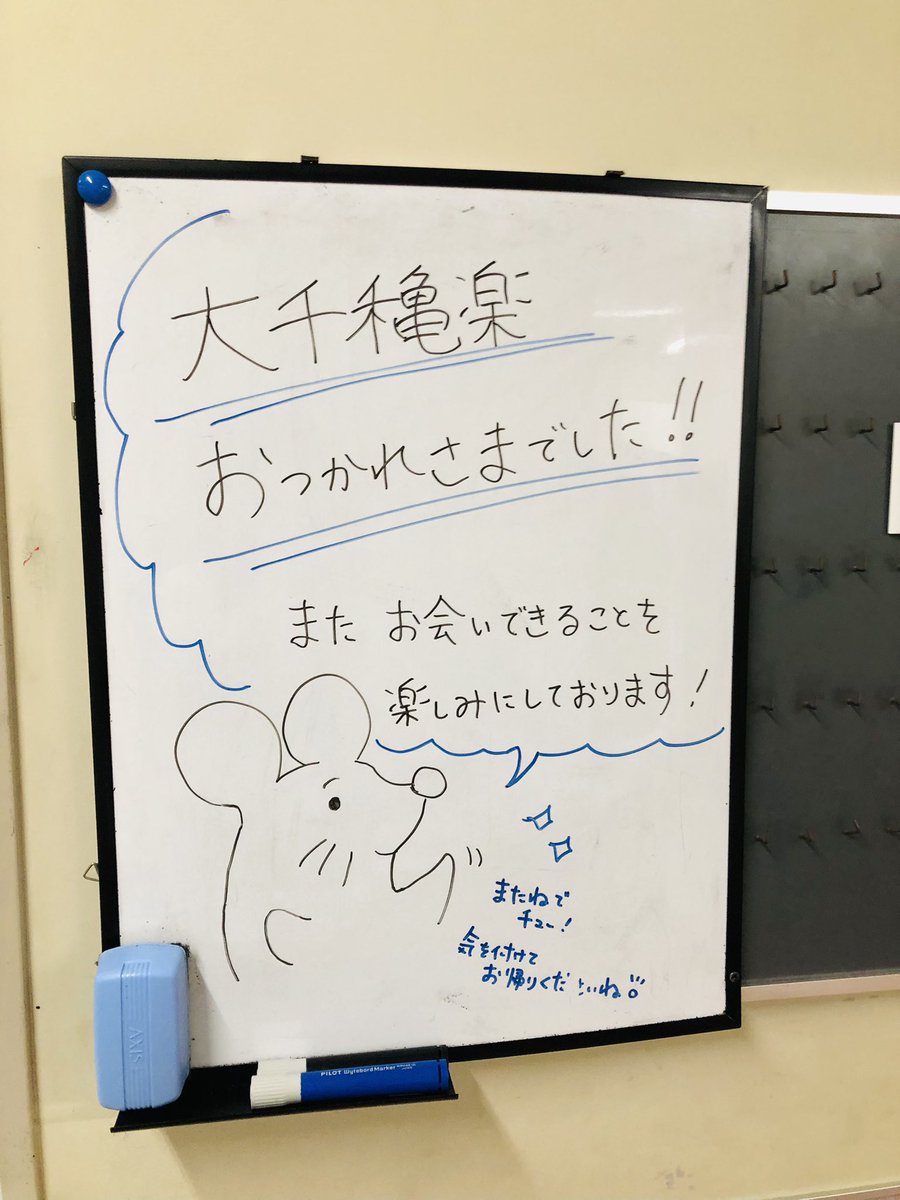 大千穐楽
おつかれさまでした!!
また お会いできることを
楽しみにしております!
またねで
チュー!
気を付けて
お帰りくださいね!!
AXIS
PILOT Wytebord Marker